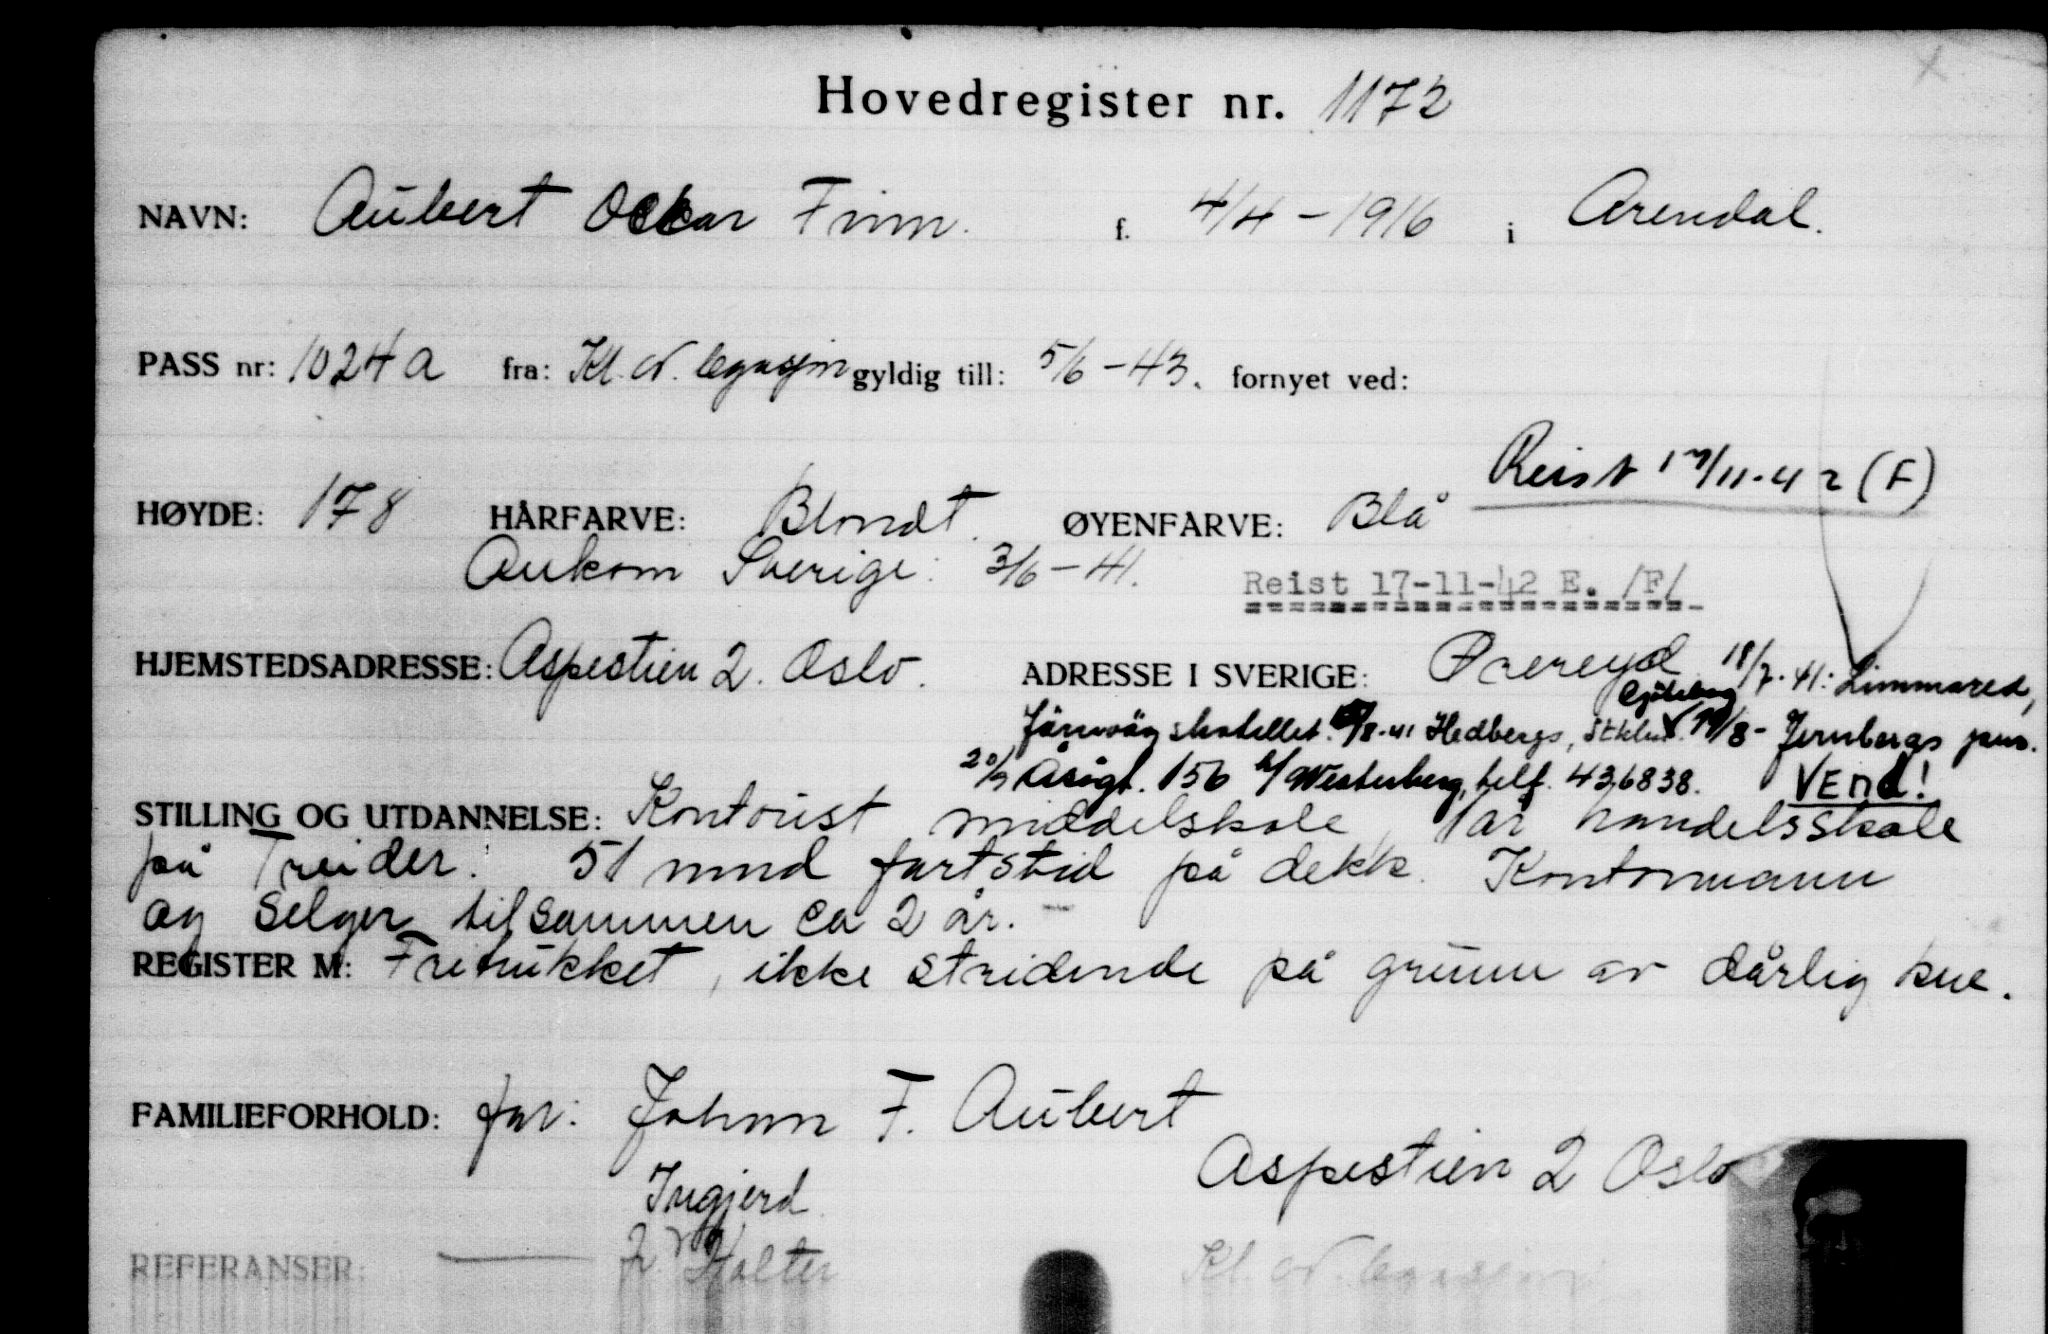 Hovedregister nr. 1172
NAVN: Aubert Oskar Finn. f. 4/4-1916 i Arendal.
PASS nr: 1024a fra: Kl. N. legasjon gyldig till: 5/6-43. fornyet ved:
Reist 17/11-42 (F)
HØYDE: 178 HÅRFARVE: Blondt. ØYENFARVE: Blå
Ankom Sverige: 3/6-41. Reist 17-11-42 E. /F/
HJEMSTEDSADRESSE: Aspestien 2. Oslo. ADRESSE I SVERIGE: Øreryd 18/7-41: Limmared,
Göteborg
Järnvägshotellet. /8-41 Hedbergs, 19/8- Jernbergs pens.
20/9 Åsögt. 156 Westerberg, telf. 436838. VEnd!
STILLING OG UTDANNELSE: Kontorist middelskole, 1 år handelsskole
på Treider. 51 mnd fartstid på dekk. Kontormann
og selger tilsammen ca 2 år. -
REGISTER M: Frebukket, ikke stridende på grunn av dårlig kne.
FAMILIEFORHOLD: far: Johan F. Aubert
Aspestien 2 Oslo
Ingjerd
REFERANSER: Holter Kl. N. legasjon